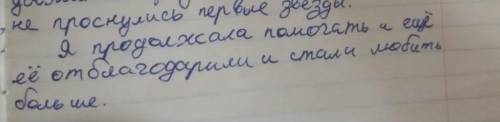 не проснулись первые звёзды.
Я продолжсала помогать и ещё
её отблагодарили и стали любить
больше.